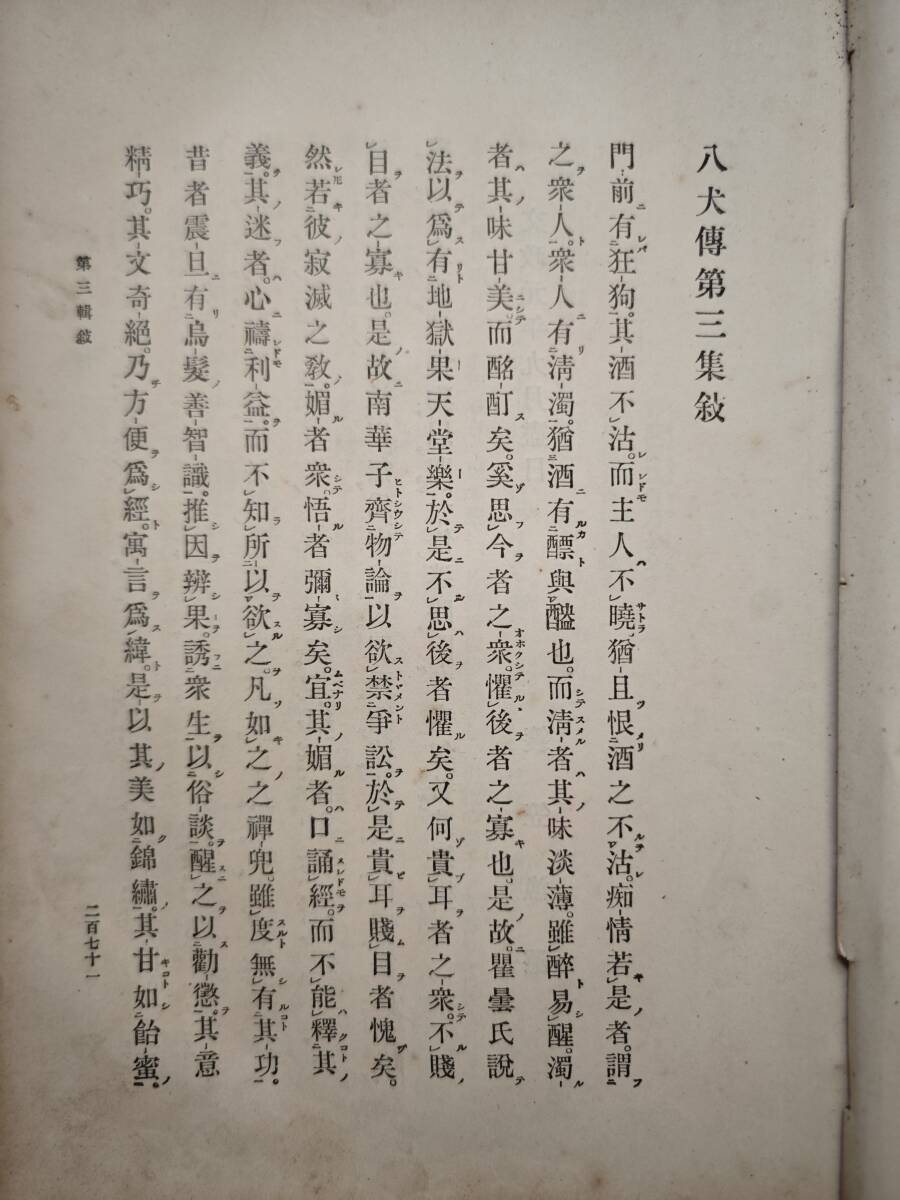 八犬傳第三集敍
門前有狂狗。其酒不沽。而主人不曉。猶且恨酒之不沽。痴情若是者。謂
之衆人。衆人有淸濁。猶酒有醥與醠也。而淸者其味淡薄。雖醉易醒。濁
者其味甘美。而酩酊矣。奚思今者之衆。懼後者之寡也。是故。瞿曇氏說
法以爲有地獄果天堂樂。於是不思後者懼矣。又何貴耳者之衆。不賤
目者之寡也。是故南華子齊物論以欲禁爭訟。於是貴耳賤目者愧矣。
然若彼寂滅之敎。媚者衆。悟者彌寡矣。宜。其媚者。口誦經。而不能釋其
義。其迷者。心禱利益。而不知所以欲之。凡如之之禪兜。雖度無有其功。
昔者震旦有烏髮善智識。推因辨果。誘衆生以俗談。醒之以勸懲。其意
精巧。其文奇絕。乃方便爲經。寓言爲緯。是以其美如錦繡。其甘如飴蜜。
第三輯敍
二百七十一